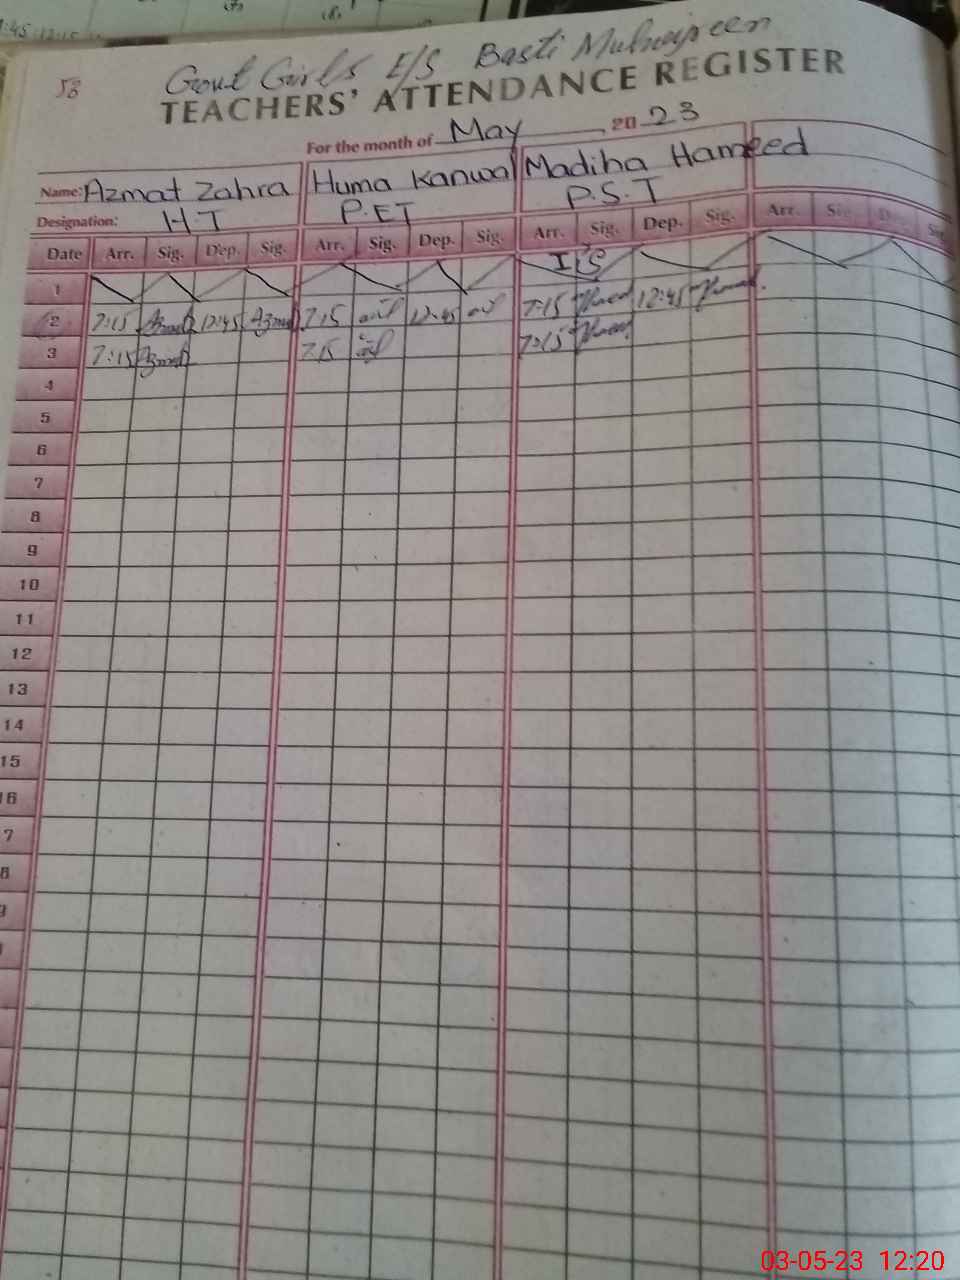 58
Govt Girls E/S Basti Muhajreen
TEACHERS' ATTENDANCE REGISTER
For the month of May 2023
Name: Azmat Zahra Huma Kanwal Madiha Hameed
Designation: H.T P.ET P.S.T
Date Arr. Sig. Dep. Sig. Arr. Sig. Dep. Sig. Arr. Sig. Dep. Sig. Arr. Sig. Dep. Sig.
1
2 7:15 Azmat 12:45 Azmat 7:15 12:45 7:15 12:45
3 7:15 Azmat 7:15 7:15
4
5
6
7
8
9
10
11
12
13
14
15
16
7
8
03-05-23 12:20